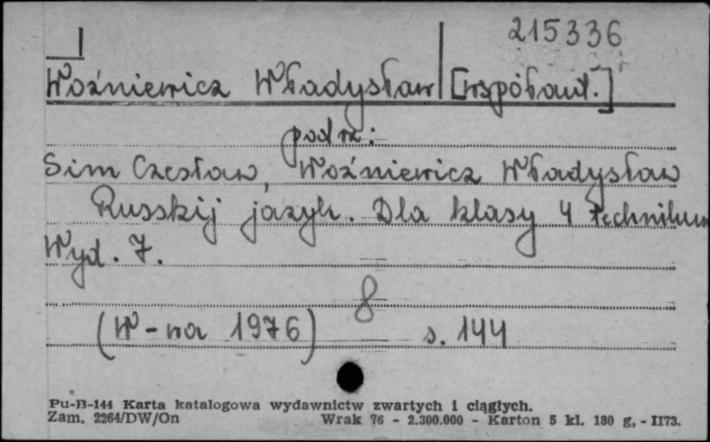 215336
Woźniewicz Władysław [współaut.]
podrz:
Sim Czesław, Woźniewicz Władysław
Russkij jazyk. Dla klasy 4 technikum
Wyd. 7.
8
(W-wa 1976) s. 144
Pu-B-144 Karta katalogowa wydawnictw zwartych i ciągłych.
Zam. 2264/DW/On Wrak 76 - 2.300.000 - Karton 5 kl. 180 g, - II73.